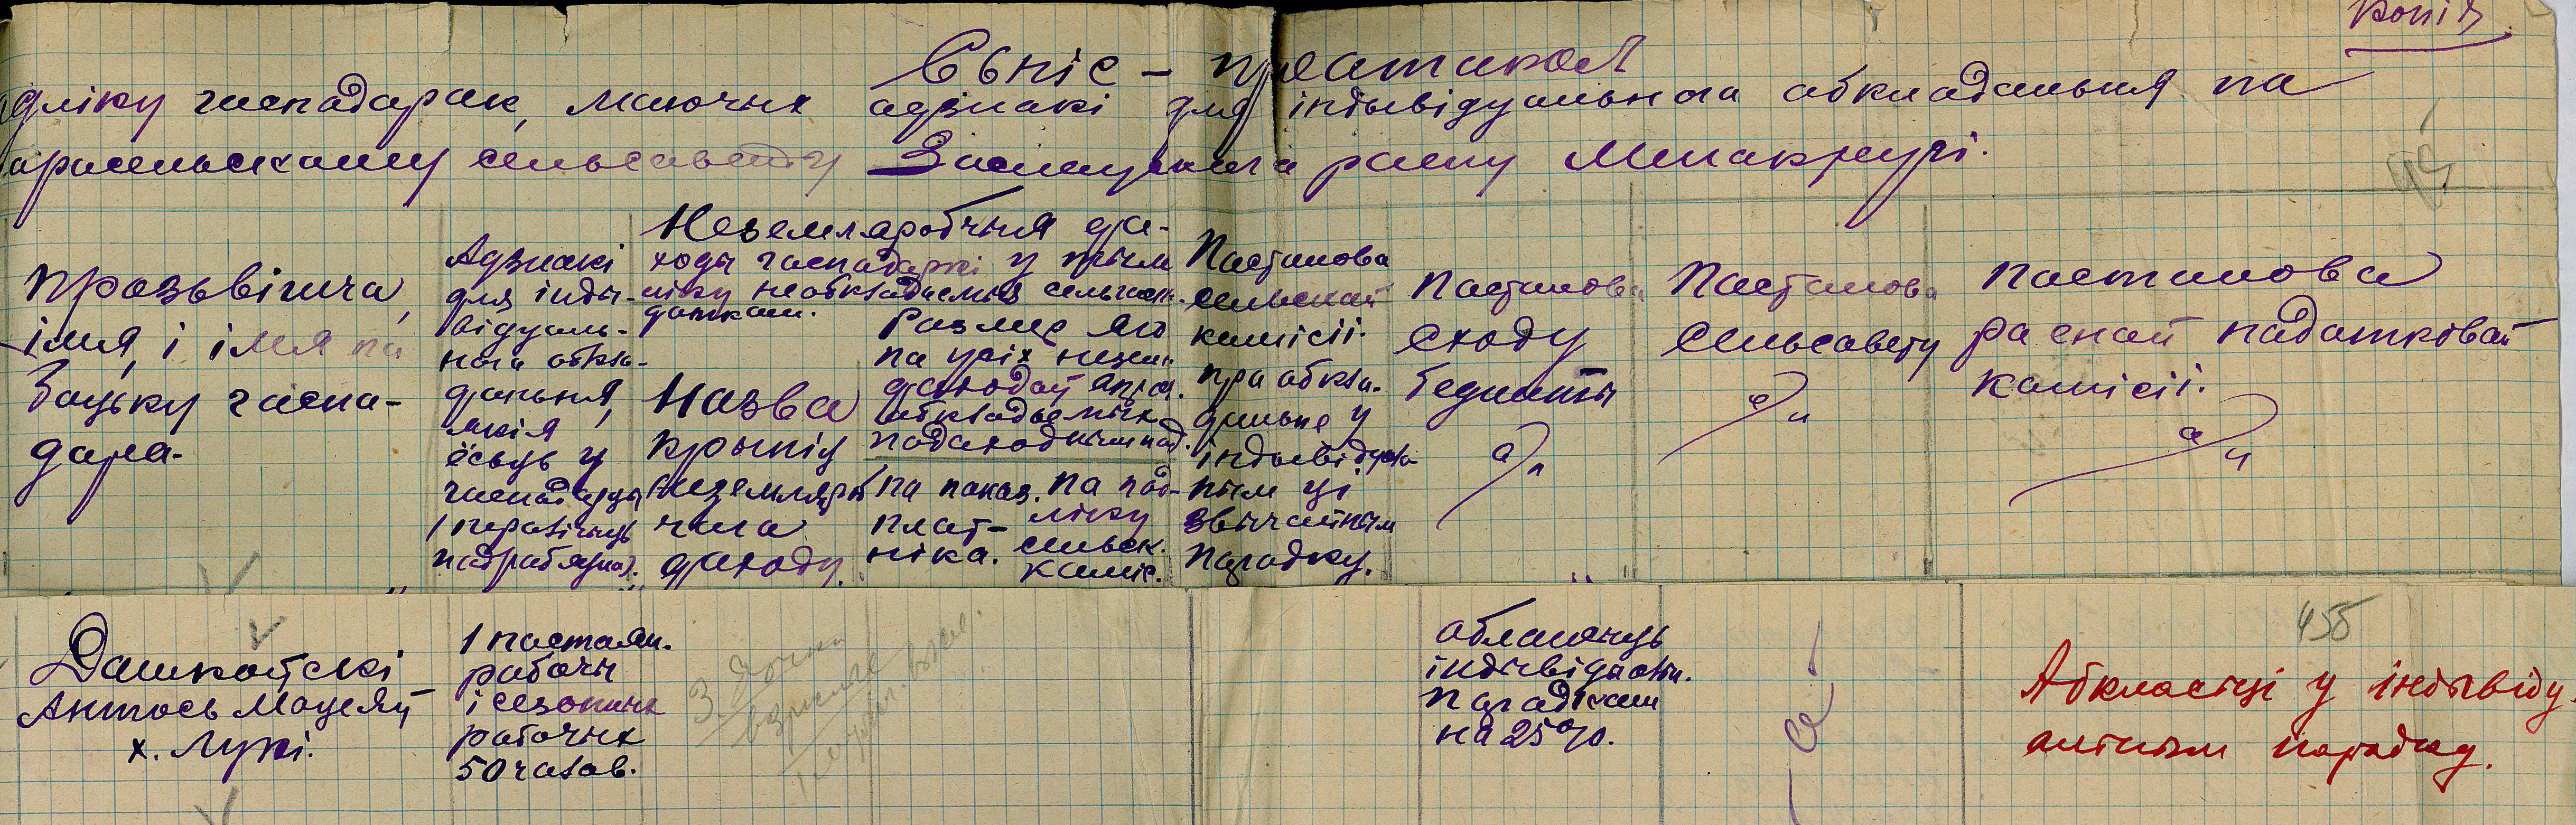 Копія
Сьпіс – пратакол
уліку гаспадарак, маючых адзнакі для індывідуальнага абкладаньня па
сельсавету Заслаўскага раену Менакругі.
Прозьвішча,
імя, і імя па
бацьку гаспа-
дара.
Адзнакі
для інды-
відуаль-
нага абкла-
даньня,
якія
ёсьць у
гаспадарцы
(пералічыць
падрабязна).
Неземляробчыя да-
ходы гаспадаркі у тым
ліку необкладаемыя сельгасп.
даткам.
Назва
крыніц
неземляроб
чага
даходу.
Размер яго
па усіх незем.
даходаў апрач.
абкладаемых
падаходным пад.
па паказ.
плат-
ніка.
па пад-
ліку
сельск.
каміс.
Пастанова
сельскай
камісіі.
пра абкла-
даньне у
індывідуал
ным ці
звычайным
парадку.
Пастанова
сходу
беднаты
Пастанова
Сельсавету
Пастанова
раеннай падатковай
камісіі.
455
Дашкоўскі
Антось Мацеяў
х. Лукі.
1 пастаян.
рабочы
і сезонных
рабочых
50 часов.
абланчыць
індывідуальн.
парадкам
на 25%.
Абкласьці у індывіду
альным парадку.